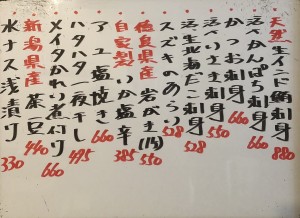 天然生インド鮪刺身 880
活〆かんぱち刺身 660
かつお刺身 660
活〆いさき刺身 528
活生北海だこ刺身 528
スズキのあらい
徳島県産 岩がき(1ヶ) 550
自家製 いか塩辛 385
アユ塩焼き 660
ハタハタ一夜干し 495
メイタかれい煮付け 660
新潟県産 茶豆 440
水ナス浅漬け 330